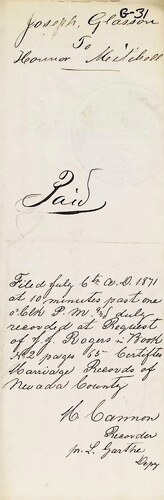 G-31
Joseph Glasson
To
Honnor Mitchell
Paid
Filed July 6th A.D. 1871
at 10 minutes past one
o'Clk P.M. and duly
recorded at Request
of J. J. Rogers in Book
No 2 pages 65 Certiften
Marriage Records of
Nevada County
H Cannon
Recorder
pr L. Garthe
Depy